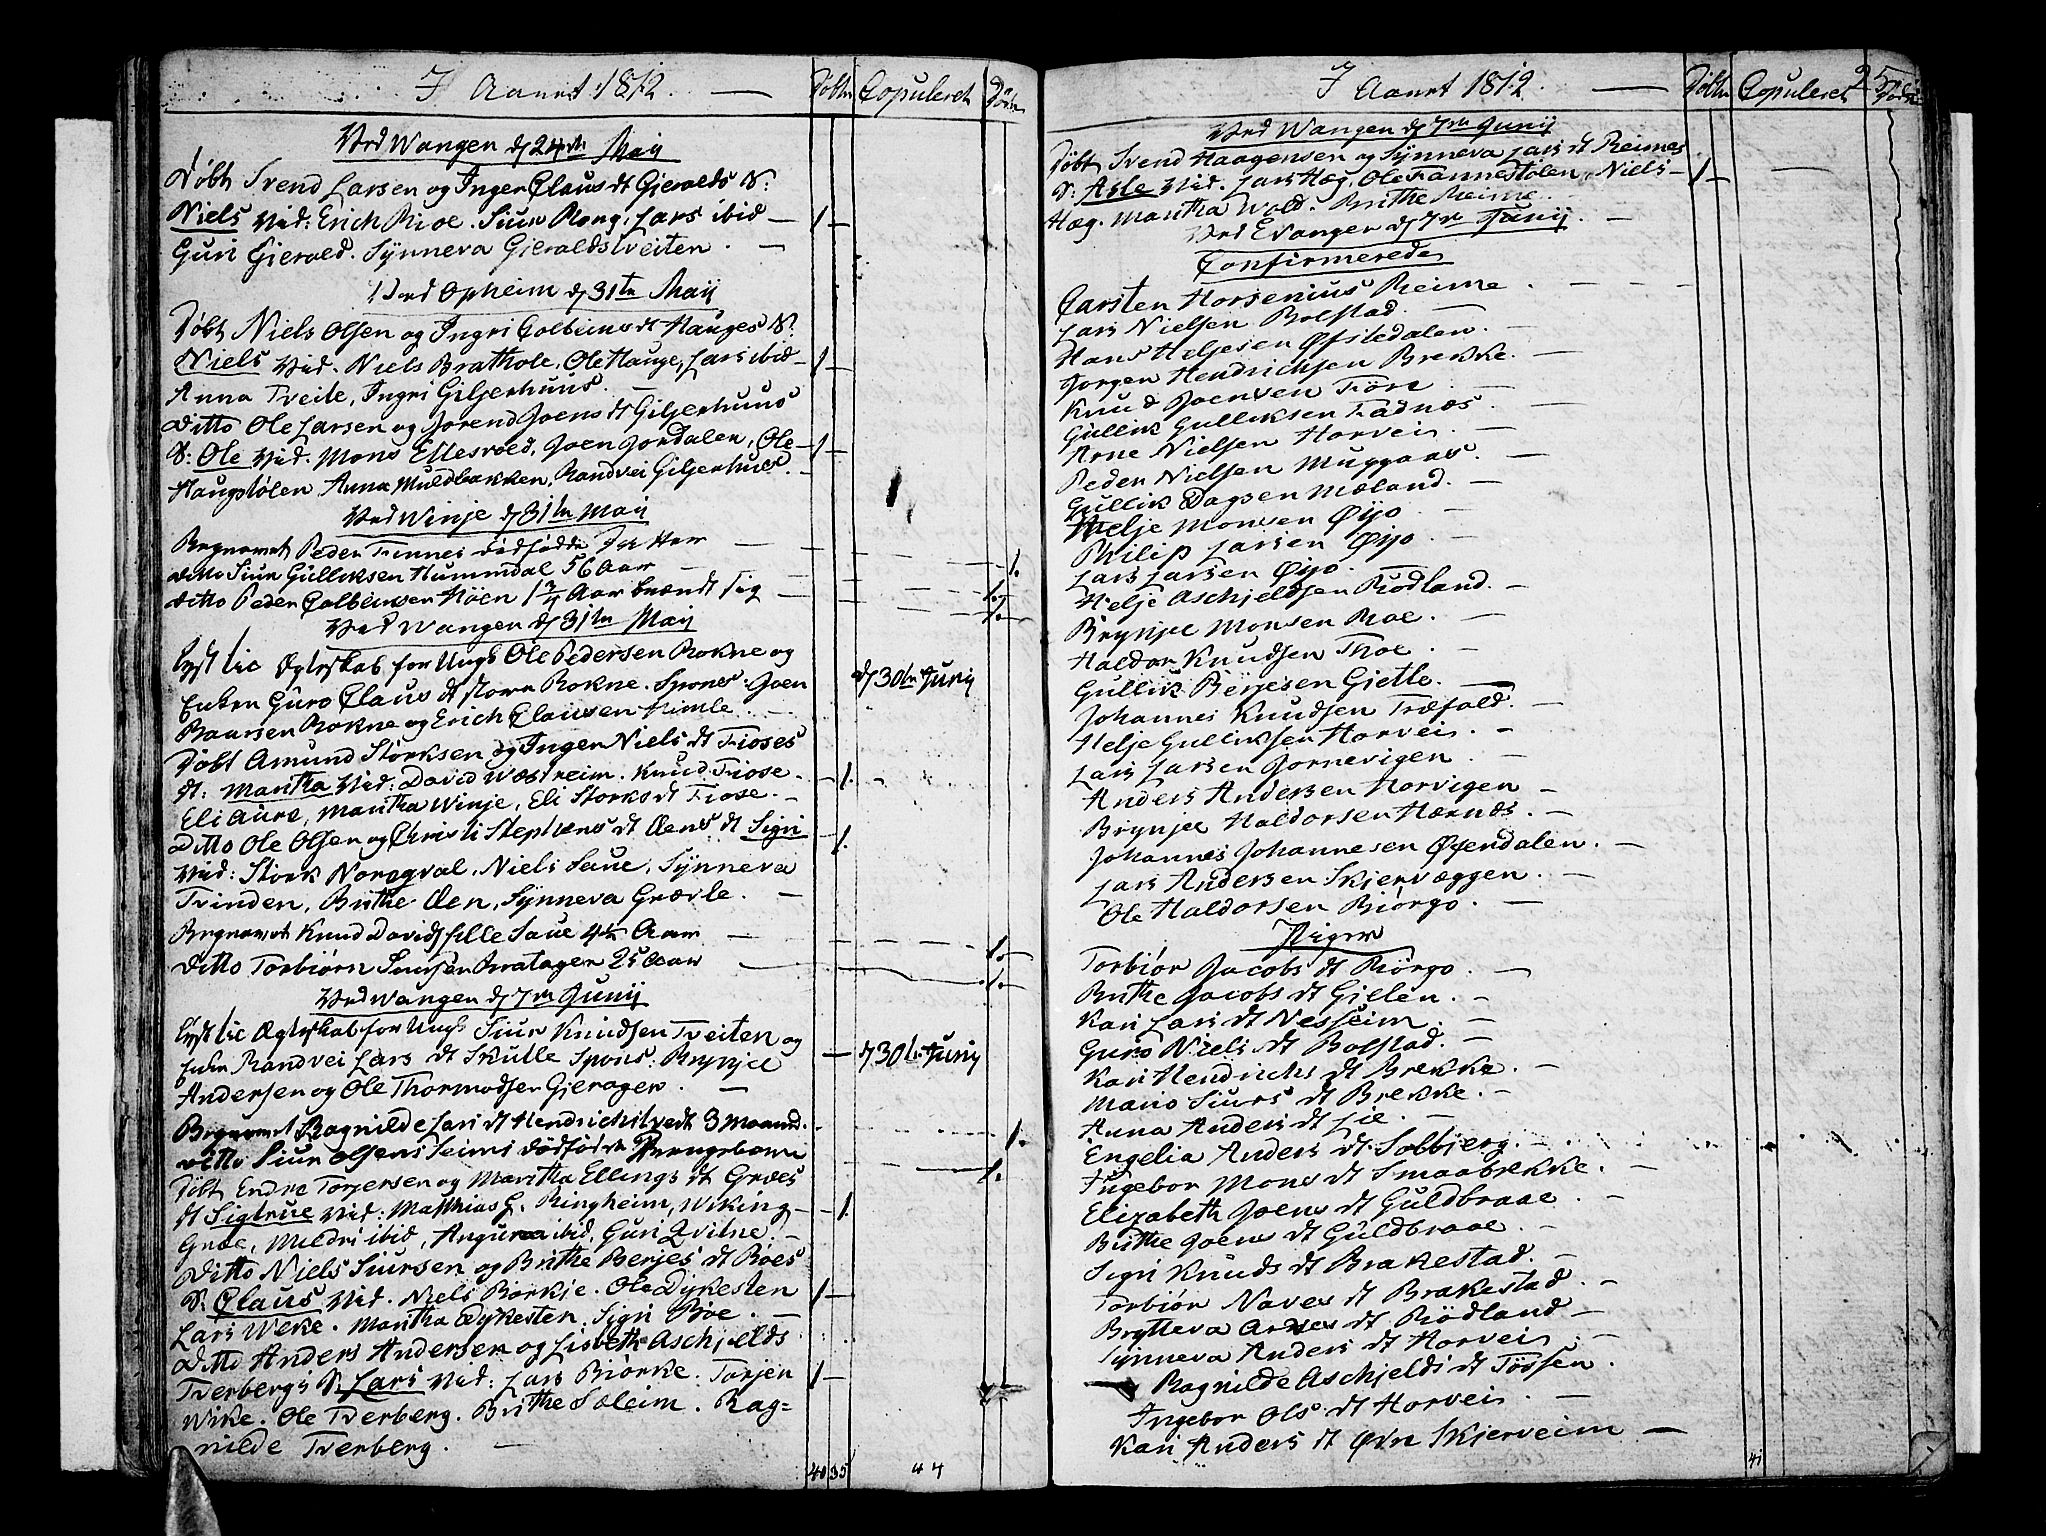 I Aaret 1812. — Døbte Copuleret Døde
Ved Wangen d 24de Maij
Døbt Svend Larsen og Inger Claus dt Gjeralds S:
Niels Vid: Erich Rioe. Siur Rong, Lars ibid — 1 —
Guri Gjerald. Synneva Gjeraldstveiten. —
Ved Opheim d 31te Maij
Døbt Niels Olsen og Ingri Colbeins dt Hauges S:
Niels Vid. Niels Brathole, Ole Hauge, Lars ibid — 1 —
Anna Tveite, Ingri Giljerhuus. —
Ditto Ole Larsen og Jorend Joens dt Giljerhuus
S: Ole Vid. Mons Ellesroed, Joen Jordalen, Ole — 1 —
Haugstølen Anna Muldbakken, Randvei Giljerhuus. —
Ved Winje d 31te Maij
Begravet Peder Finnes dødfødde — 1.
ditto Siur Gulliksen Hummdal 56 Aar — 1.
ditto Peder Colbeinsen Høen 1 3/4 Aar brændt sig — 1. —
Ved Wangen d 31te Maij
Lyst til Ægteskab for Ungk Ole Pedersen Rokne og
Enken Guro Claus dt store Rokne. Spons: Joen d 30te Junij
Baarsen Rokne og Erich Clausen Himle. —
Døbt Amund Størksen og Inger Niels dt Fioses
dt: Martha Vid: David Wæstreim. Knud Fiose. — 1. —
Eli Aure, Martha Winje, Eli Storks dt Fiose. —
Ditto Ole Olsen og Christi Stephens dt Øens dt Sigri 1.
Vid: Stork Norqval, Niels Saue, Synneva
Tvinden, Brithe Øen, Synneva Græele. —
Begravet Knud Davids ille Saue 4 Aar — 1. —
Ditto Torbiørn Siursen 25 Aar — 1. —
Ved Wangen d 7de Junij
Lyst til Ægteskab for Ungk Siur Knudsen Tveiten og
Enken Randvei Lars dt Skulle Spons: Brynjel — d 30te Junij
Andersen og Ole Thormodsen Gjerager. —
Begravet Ragnilde Lars dt Hendrichstvedt 3 Maaned. — 1.
ditto Siur Olsens Seims dødfødt Drengebarn — 1.
Døbt Endre Torjersen og Martha Ellings dt Groes
dt Sigtrue Vid: Matthias G. Ringheim, Wiking — 1.
Groe, Mildri ibid, Angunna ibid, Guri Qvitne. —
Ditto Niels Siursen og Brithe Berjes dt Roes
S: Claus Vid. Niels Borkje. Ole Dykesten 1 —
Lars Weke. Martha Dykesten, Sigri Roe. —
Ditto Anders Andersen og Lisbeth Aschjelds
Tverbergs S: Lars Vid: Lars Biørke. Torjen 1 —
Wike. Ole Tverberg. Brithe Sæleim. Rag=
nilde Tverberg. —
40 35 44
I Aaret 1812. — Døbte Copuleret Døde
25
Ved Wangen d 7de Junij
Døbt Svend Haagensen og Synneva Lars dt Reimes
S: Asle Vid. Lars Hæg, Ole Finnestølen, Niels — 1 —
Hæg. Martha Wold. Brithe Reime.
Ved Evanger d 7de Junij. —
Confirmerede
Carsten Horsenius Reime. —
Lars Nielsen Bolstad. —
Hans Heljesen Øfstedalen. —
Jørgen Hendrichsen Brekke. —
Knud Joensen Fiøse. —
Gullik Gulliksen Fadnæs. —
Arne Nielsen Horvei. —
Peder Nielsen Muggaas. —
Gullik Dagsen Mæland. —
Helje Monsen Øyo. —
Philip Larsen Øyo. —
Lars Larsen Øyo. —
Helje Aschjeldsen Rødland. —
Brynjel Monsen Roe. —
Haldor Knudsen Thoe. —
Gullik Berjesen Gietle. —
Johannes Knudsen Træfald. —
Helje Gulliksen Horvei. —
Lars Larsen Jornevigen. —
Anders Andersen Horvigen —
Brynjel Haldorsen Hernæs. —
Johannes Johannesen Øyendalen. —
Lars Andersen Skjervæggen. —
Ole Haldorsen Biørgo. —
Piger
Torbiør Jacobs dt Biørgo. —
Brithe Jacobs dt Gielen. —
Kari Lars dt Nesheim. —
Guro Niels dt Bolstad. —
Kari Hendrichs dt Brekke. —
Mario Siurs dt Brekke. —
Anna Anders dt Lie. —
Engelia Anders dt Solbjerg. —
Ingebor Mons dt Smaabrekke. —
Elizabeth Joens dt Guldbraae. —
Brithe Joens dt Guldbraae. —
Sigri Knuds dt Brakestad. —
Torbiør Naves dt Brakestad. —
Brytteva Arnes dt Rødland —
Synneva Anders dt Horvei. —
Ragnilde Aschjelds dt Tøssen.
Ingebor Ols dt Horvei. —
Kari Anders dt Øvre Skjerveim —
41